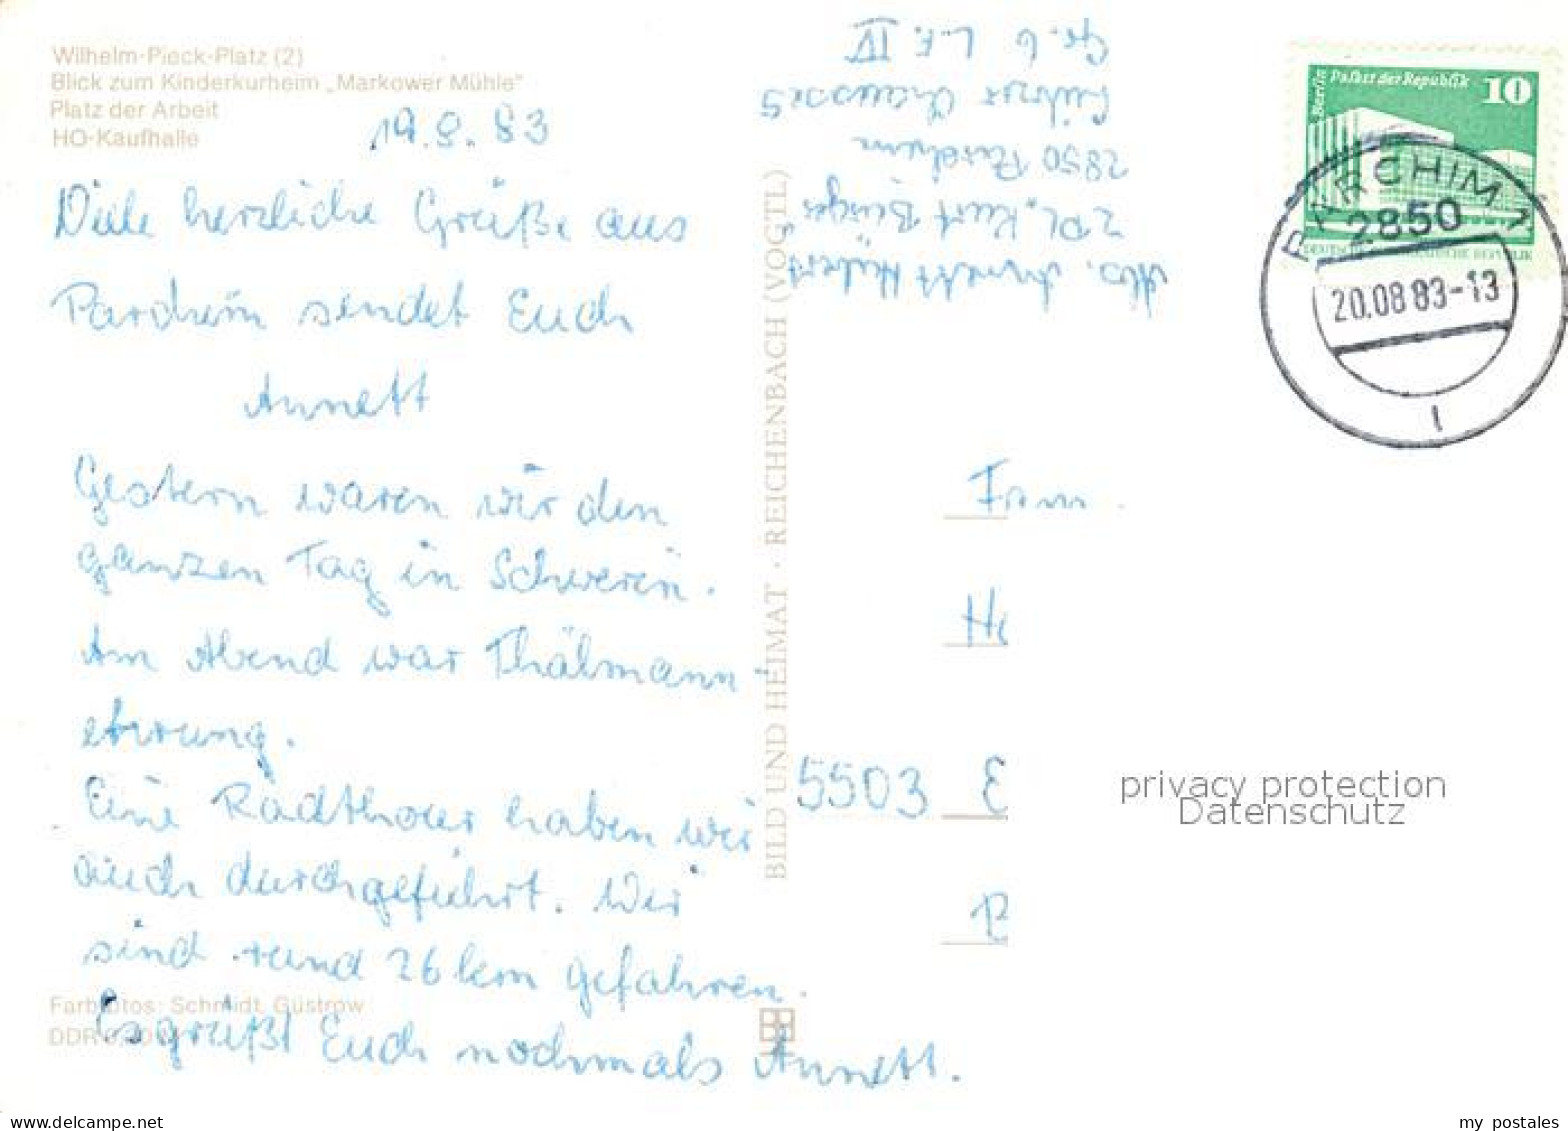 Wilhelm-Pieck-Platz (2)
Blick zum Kinderkurheim „Markower Mühle"
Platz der Arbeit
HO-Kaufhalle
19.8.83
Viele herzliche Grüße aus
Parchim sendet Euch
Annett
Gestern waren wir den
ganzen Tag in Schwerin.
Am Abend war Thälmann-
ehrung.
Eine Radthour haben wir
auch durchgeführt. Wir
sind rund 26 km gefahren.
Es grüßt Euch nochmals Annett.
Farbfotos: Schmidt, Güstrow
DDR
BILD UND HEIMAT · REICHENBACH (VOGTL)
Abs. Annett
ZPL. "Kurt Bürger"
2850 Parchim
Lübzer Chaussee
Gr. 6 L.F. IV
Berlin Palast der Republik 10
DEUTSCHE DEMOKRATISCHE REPUBLIK
PARCHIM 1
2850
20.08.83-13
Fam.
5503 E
privacy protection
Datenschutz
www.delcampe.net
my_postales